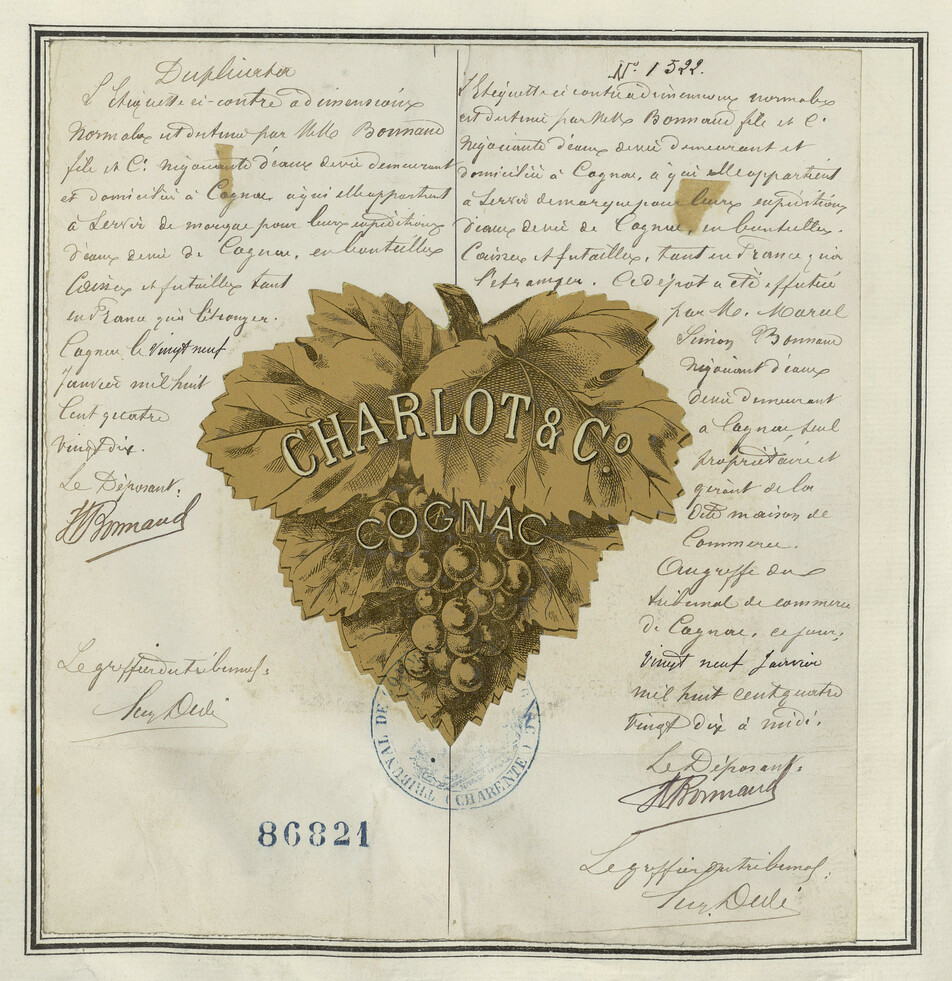 Duplicata
L'Etiquette ci-contre a dimensions
Normales est destinée par M.M. Bonnaud
fils et Cie. négociants d'eaux de vie demeurant
et domiciliés à Cognac, à qui elle appartient
à servir de marque pour leurs expéditions
d'eaux de vie de Cognac, en bouteilles
Caisses et futailles tant
en France qu'à l'étranger.
Cognac le vingt neuf
Janvier mil huit
Cent quatre
Vingt dix.
Le Déposant:
Bonnaud
Le greffier du tribunal:
N° 1522.
L'Etiquette ci contre a dimensions normales
est destinée par M.M. Bonnaud fils et Cie.
Négociants d'eaux de vie demeurant et
domiciliés à Cognac, à qui elle appartient
à servir de marque pour leurs expéditions
d'eaux de vie de Cognac, en bouteilles.
Caisses et futailles, tant en France qu'à
l'étranger. Ce dépôt a été effectué
par M. Marcel
Simon Bonnaud
négociant d'eaux
de vie demeurant
à Cognac seul
propriétaire et
gérant de la
dite maison de
Commerce.
Au greffe du
tribunal de commerce
de Cognac, ce jour,
vingt neuf Janvier
mil huit cent quatre
vingt dix à midi.
Le Déposant:
Bonnaud
Le greffier du tribunal:
CHARLOT & Co.
COGNAC
TRIBUNAL DE
CHARENTE
86821